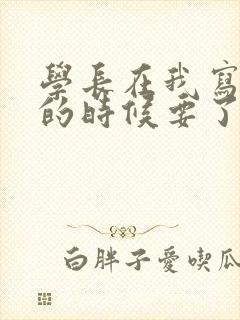 學長在我寫
的時候要了
白胖子愛喫瓜